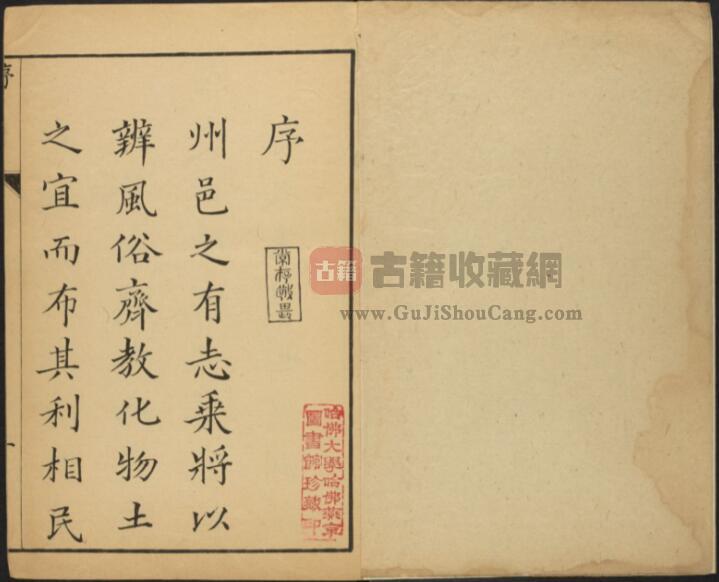 序
州邑之有志乘將以
辨風俗齊教化物土
之宜而布其利相民
哈佛大學哈佛燕京
圖書館珍藏印
古籍
古籍收藏網
www.GuJiShouCang.com
序
一